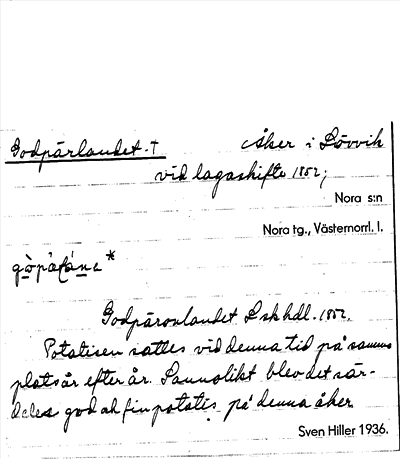 Godpärlandet.†
Åker i Lövvik
vid lagaskifte 1852;
Nora s:n
Nora tg., Västernorrl. l.
Godpäronlandet L skhdl. 1852.
Potatisen sattes vid denna tid på samma
plats år efter år. Sannolikt blev det sär-
deles god ah fin potatis på denna åker
Sven Hiller 1936.